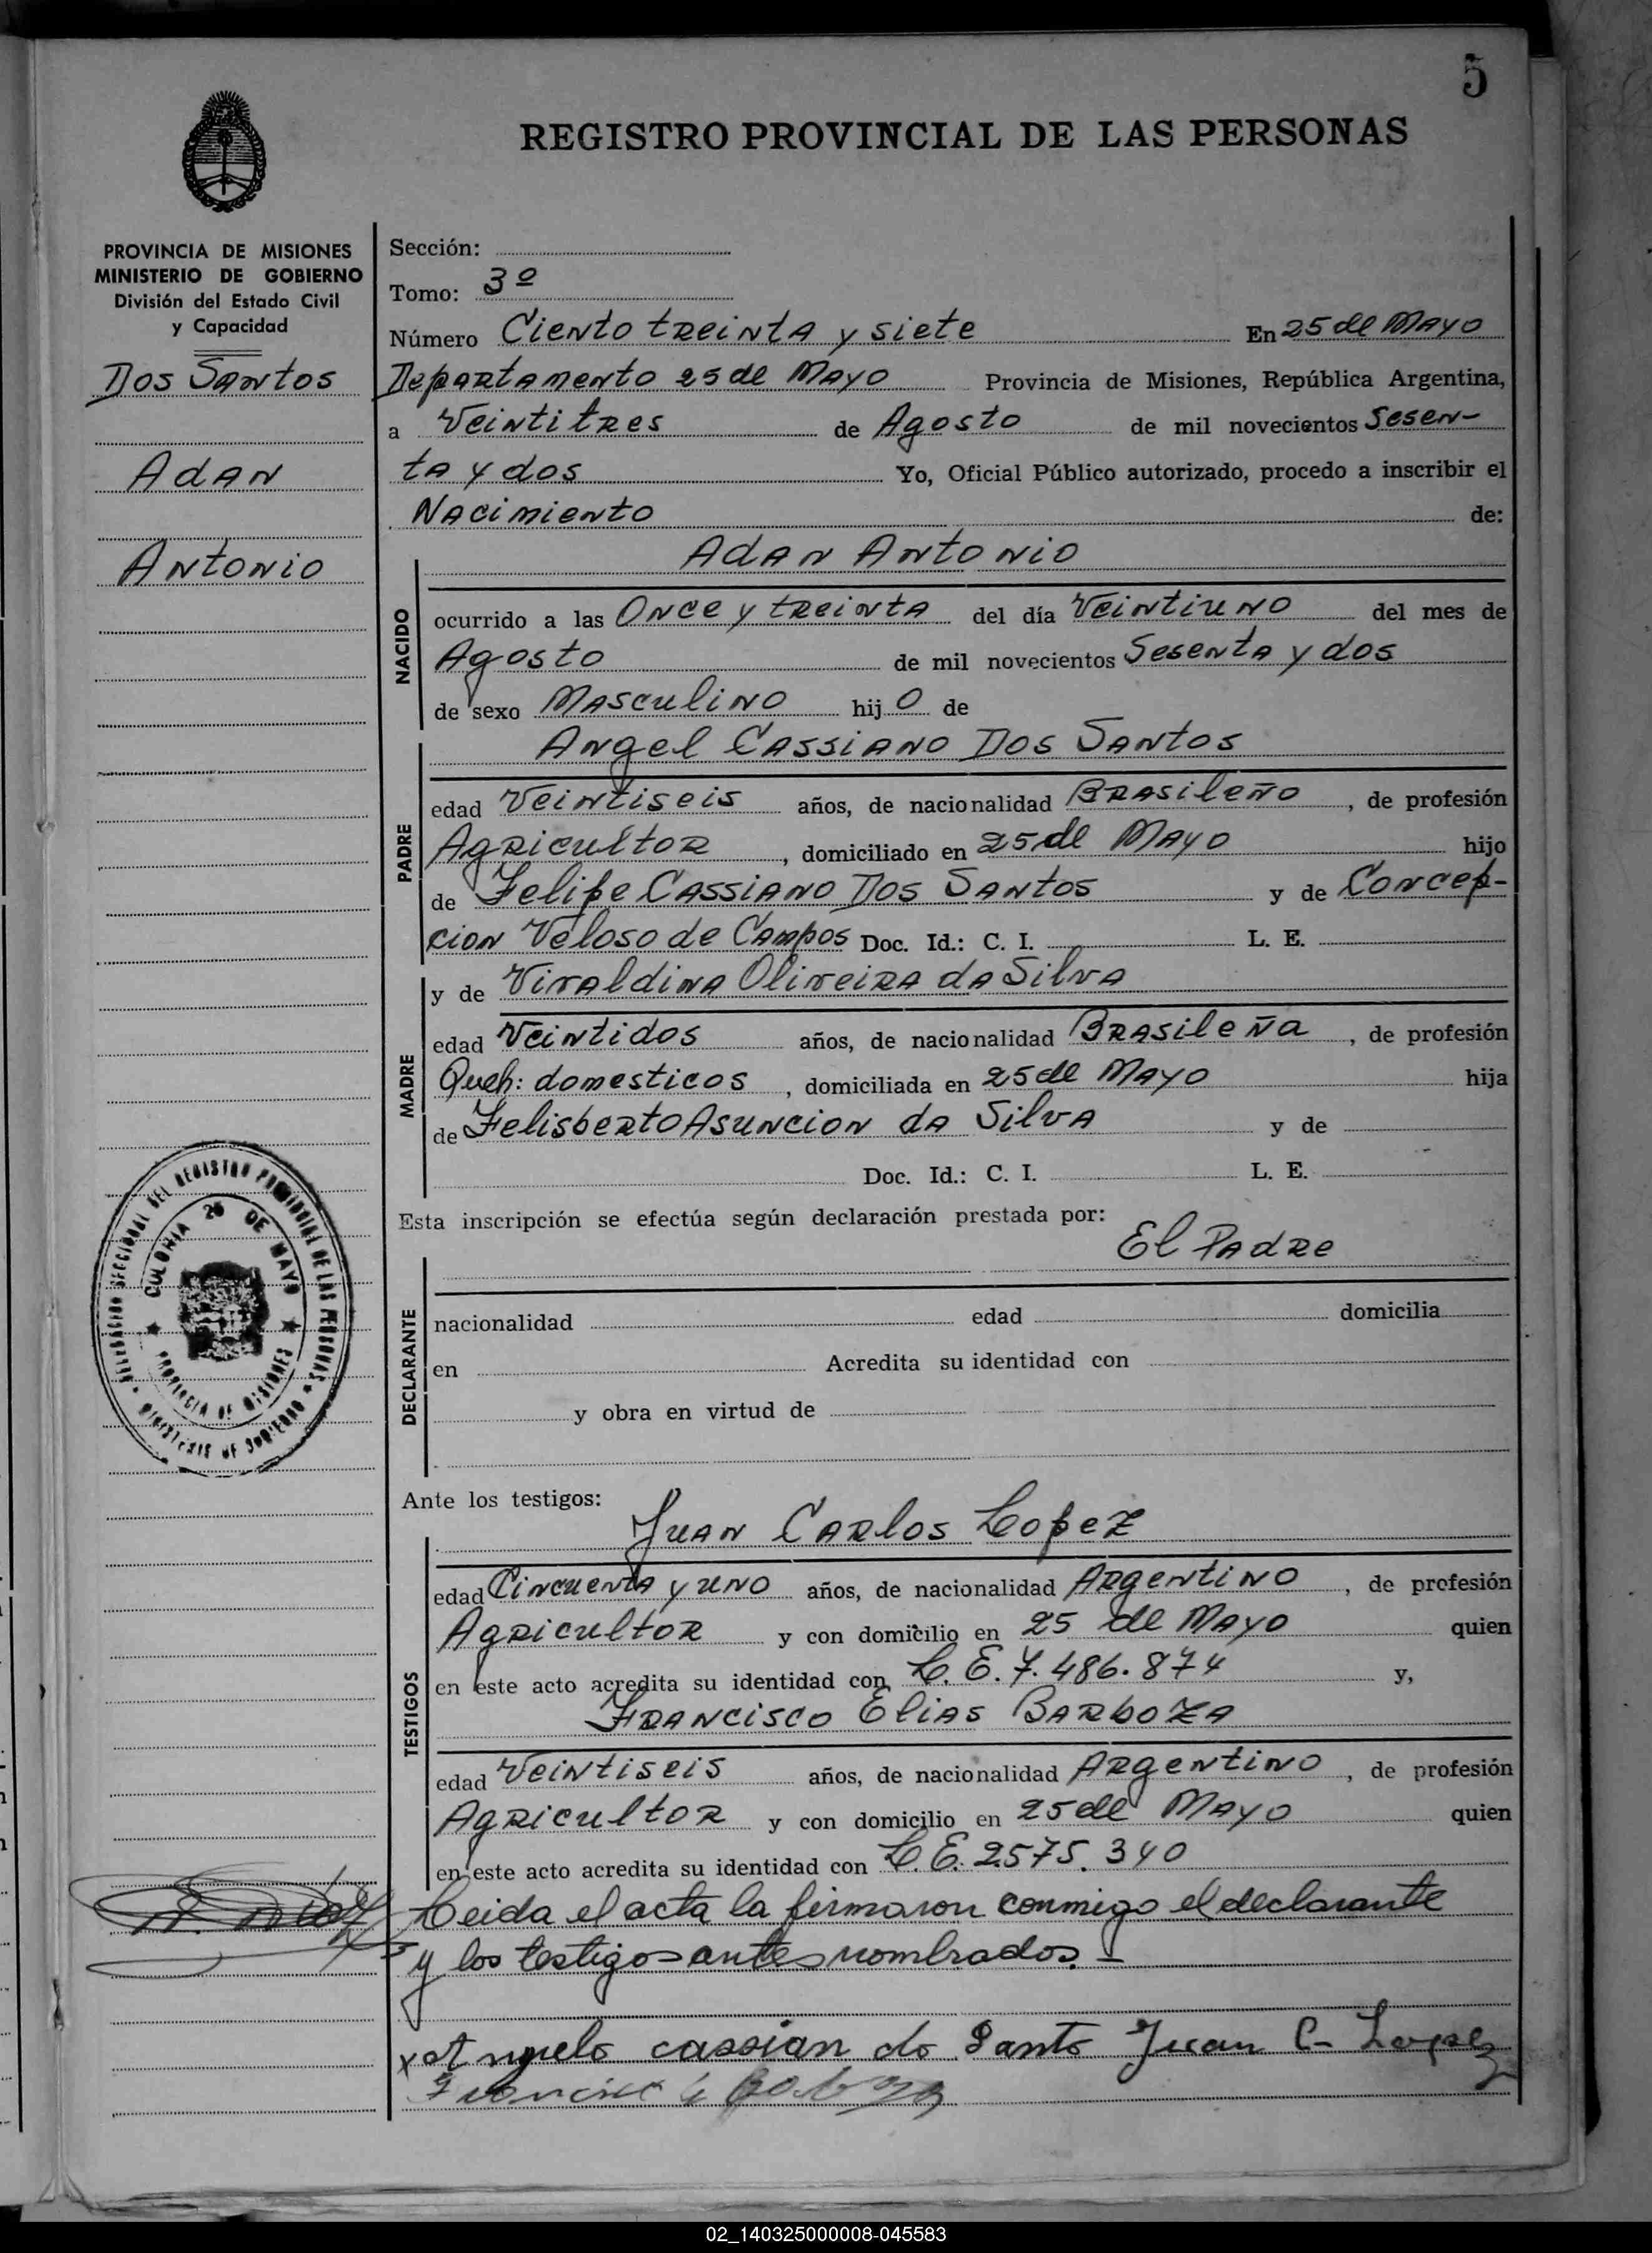 5
REGISTRO PROVINCIAL DE LAS PERSONAS
PROVINCIA DE MISIONES
MINISTERIO DE GOBIERNO
División del Estado Civil
y Capacidad
Dos Santos
Adan
Antonio
Sección:
Tomo: 3º
Número Ciento treinta y siete En 25 de Mayo
Departamento 25 de Mayo Provincia de Misiones, República Argentina,
a Veintitres de Agosto de mil novecientos Sesen-
ta y dos Yo, Oficial Público autorizado, procedo a inscribir el
Nacimiento de:
Adan Antonio
NACIDO
ocurrido a las Once y treinta del día Veintiuno del mes de
Agosto de mil novecientos Sesenta y dos
de sexo Masculino hij o de
Angel Cassiano Dos Santos
PADRE
edad Veintiseis años, de nacionalidad Brasileño, de profesión
Agricultor, domiciliado en 25 de Mayo hijo
de Felipe Cassiano Dos Santos y de Concep-
cion Veloso de Campos Doc. Id.: C. I. L. E.
y de Viraldina Oliveira da Silva
MADRE
edad Veintidos años, de nacionalidad Brasileña, de profesión
Queh: domesticos, domiciliada en 25 de Mayo hija
de Felisberto Asuncion da Silva y de
Doc. Id.: C. I. L. E.
Esta inscripción se efectúa según declaración prestada por:
El Padre
DECLARANTE
nacionalidad edad domicilia
en Acredita su identidad con
y obra en virtud de
DELEGACION SECCIONAL DEL REGISTRO PROVINCIAL DE LAS PERSONAS
COLONIA 25 DE MAYO
PROVINCIA DE MISIONES
MINISTERIO DE GOBIERNO
Ante los testigos:
Juan Carlos Lopez
TESTIGOS
edad Cincuenta y uno años, de nacionalidad Argentino, de profesión
Agricultor y con domicilio en 25 de Mayo quien
en este acto acredita su identidad con L. E. 7.486.874 y,
Francisco Elias Barboza
edad Veintiseis años, de nacionalidad Argentino, de profesión
Agricultor y con domicilio en 25 de Mayo quien
en este acto acredita su identidad con L. E. 2575.340
Leida el acta la firmaron conmigo el declarante
y los testigos antes nombrados. -
x Anguelo cassian do Santo Juan C- Lopez
02_140325000008-045583